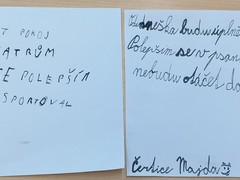 T POKOJ
ATRŮM
E POLEPŠÍM
SPORTOVAL
Od dneška budu úplně
Polepším se v psan
nebudu otáčet do
Čertice Majda